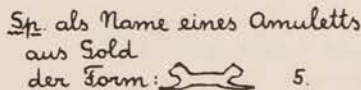 Sp. als Name eines Amuletts
aus Gold
der Form: 5.